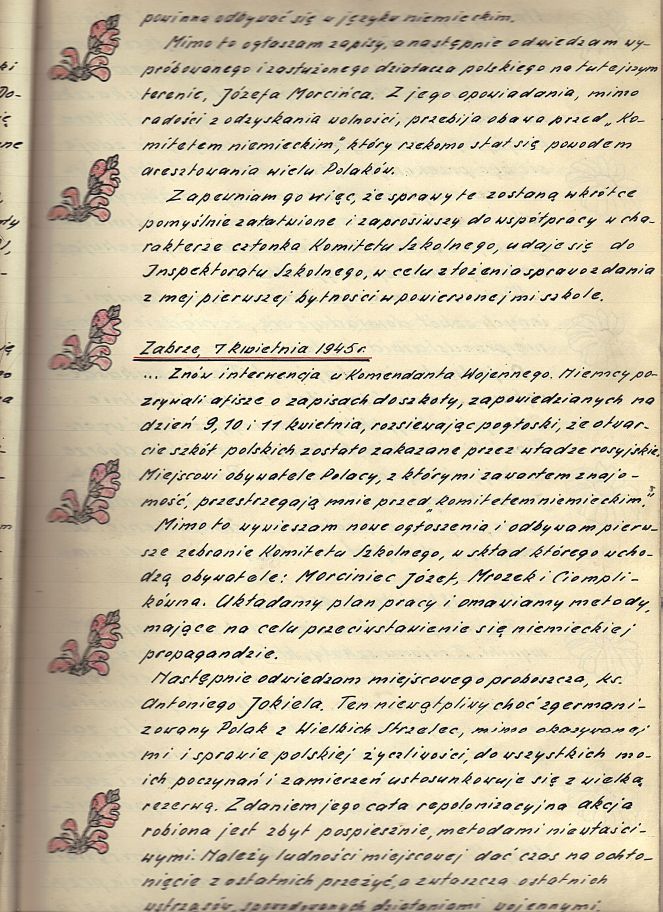 powinna odbywać się w języku niemieckim.
Mimo to ogłaszam zapisy, a następnie odwiedzam wy-
próbowanego i zasłużonego działacza polskiego na tutejszym
terenie, Józefa Morcińca. Z jego opowiadania, mimo
radości z odzyskania wolności, przebija obawa przed „Ko-
mitetem niemieckim”, który rzekomo stał się powodem
aresztowania wielu Polaków.
Zapewniam go więc, że sprawy te zostaną wkrótce
pomyślnie załatwione i zaprosiwszy do współpracy w cha-
rakterze członka Komitetu Szkolnego, udaję się do
Inspektoratu Szkolnego, w celu złożenia sprawozdania
z mej pierwszej bytności w powierzonej mi szkole.
Zabrze, 7 kwietnia 1945 r.
... Znów interwencja u Komendanta Wojennego. Niemcy po-
zrywali afisze o zapisach do szkoły, zapowiedzianych na
dzień 9, 10 i 11 kwietnia, rozsiewając pogłoski, że otwar-
cie szkół polskich zostało zakazane przez władze rosyjskie.
Miejscowi obywatele Polacy, z którymi zawarłem znajo-
mość, przestrzegają mnie przed „komitetem niemieckim.”
Mimo to wywieszam nowe ogłoszenia i odbywam pierw-
sze zebranie Komitetu Szkolnego, w skład którego wcho-
dzą obywatele: Morciniec Józef, Mrozek i Ciompli-
kówna. Układamy plan pracy i omawiamy metody,
mające na celu przeciwstawienie się niemieckiej
propagandzie.
Następnie odwiedzam miejscowego proboszcza, ks.
Antoniego Jokiela. Ten niewątpliwy choć zgermani-
zowany Polak z Wielkich Strzelec, mimo okazywanej
mi i sprawie polskiej życzliwości, do wszystkich mo-
ich poczynań i zamierzeń ustosunkowuje się z wielką
rezerwą. Zdaniem jego cała repolonizacyjna akcja
robiona jest zbyt pospiesznie, metodami niewłaści-
wymi. Należy ludności miejscowej dać czas na ochło-
nięcie z ostatnich przeżyć, a zwłaszcza ostatnich
wstrząsów, spowodowanych działaniami wojennymi,